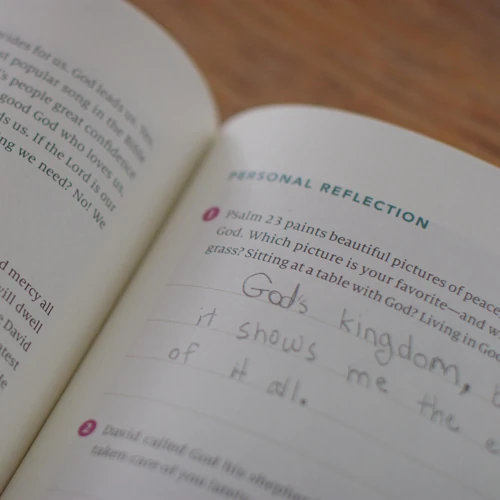 vides for us. God leads us.
st popular song in the Bible
s people great confidence
good God who loves us,
ds us. If the Lord is our
ng we need? No! We
d mercy all
will dwell
e David
test
de
PERSONAL REFLECTION
1 Psalm 23 paints beautiful pictures of peace
God. Which picture is your favorite—and w
grass? Sitting at a table with God? Living in God
God's kingdom, b
it shows me the e
of it all.
2 David called God his shepher
taken care of you